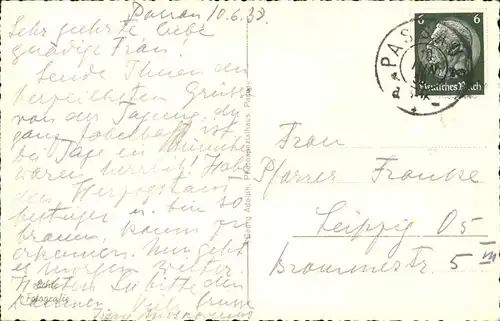 Passau 10.6.38.
Sehr geehrte liebe
gnädige Frau.
Sende Ihnen die
herzlichsten Grüße
von der Tagung, die
ganz fabelhaft ist
die Tage in München
waren herrlich! Habe
den Herzogstand
bestiegen u. bin so
braun, kaum zu
erkennen. Nun geht
es morgen weiter
Viele Grüsse
Echte
Fotografie
Georg Adolph, Photospezialhaus, Passau
PASSAU
6 6
Deutsches Reich
Frau
Pfarrer Francke
Leipzig O5
Brommestr. 5 III